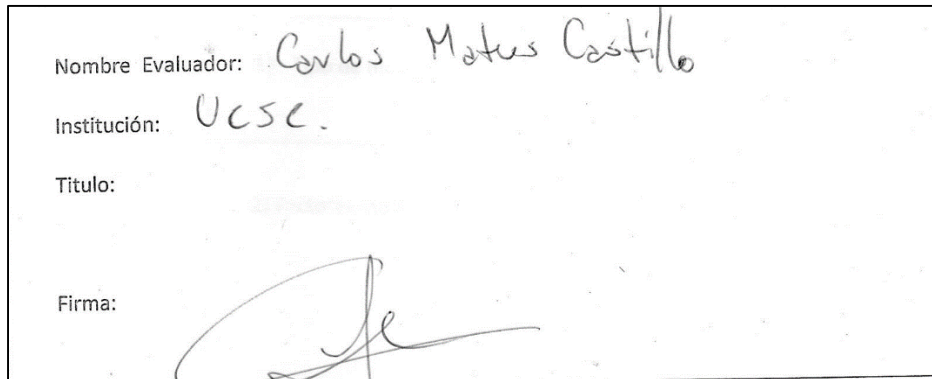 Nombre Evaluador: Carlos Matus Castillo
Institución: UCSC.
Titulo:
Firma: